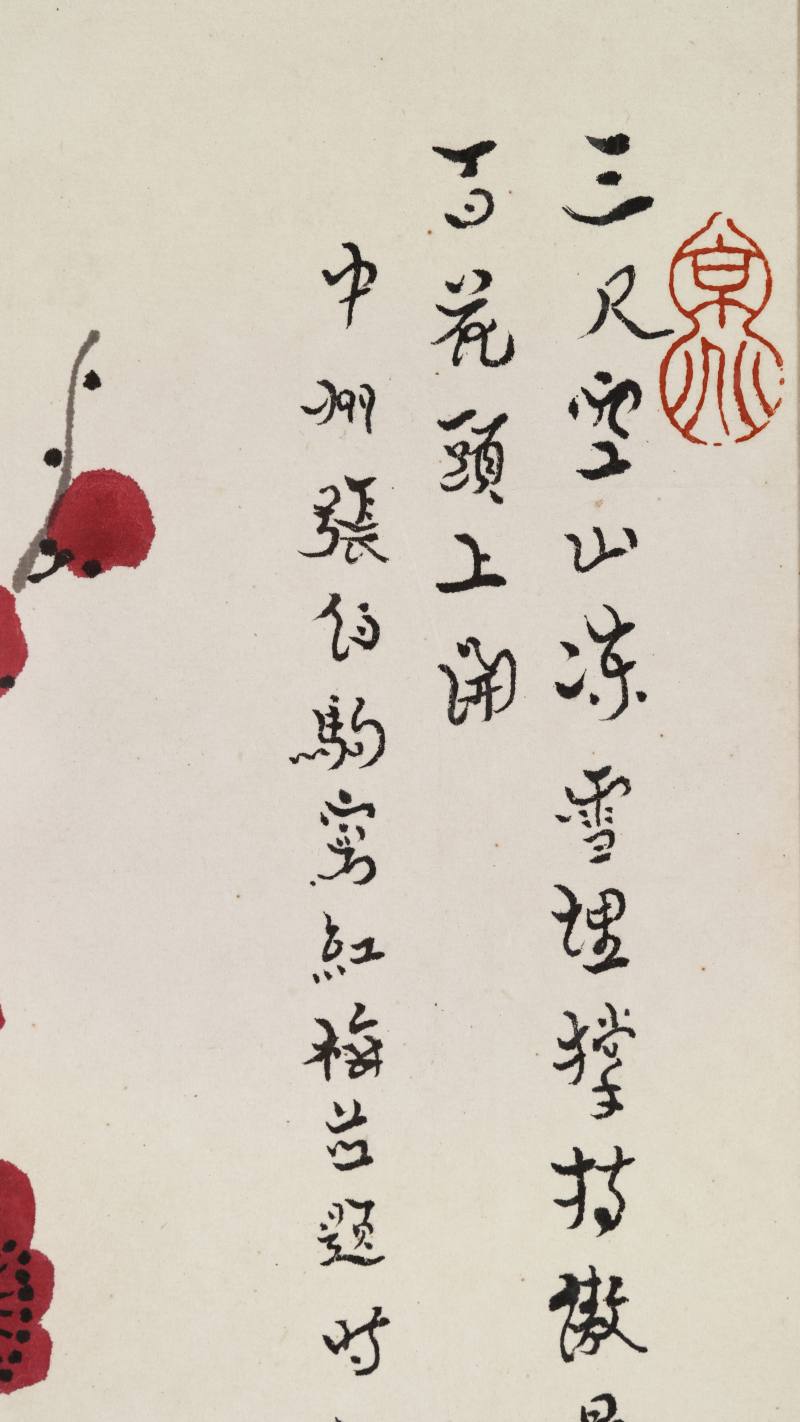 三尺雪山凍雪埋撐持傲
百花頭上開
中州張伯駒寫紅梅並題時